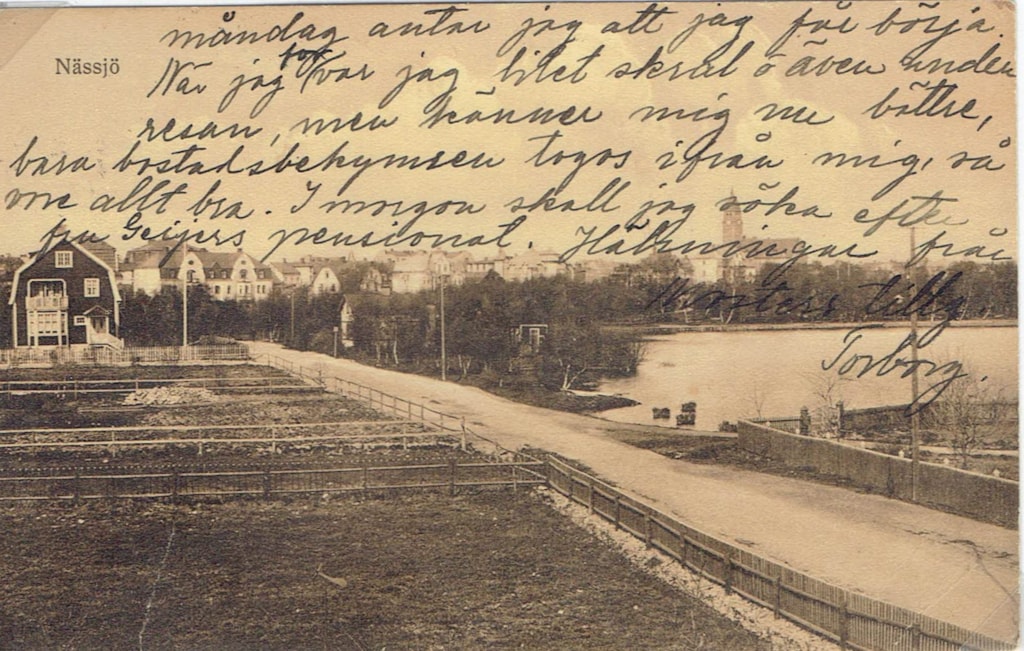 måndag antar jag att jag får börja.
Nässjö
När jag for var jag litet skral o även under
resan, men känner mig nu bättre,
bara bostadsbekymren togos ifrån mig, så
vore allt bra. I morgon skall jag söka efter
fru Geijers pensionat. Hälsningar från
Tilly
Torborg.